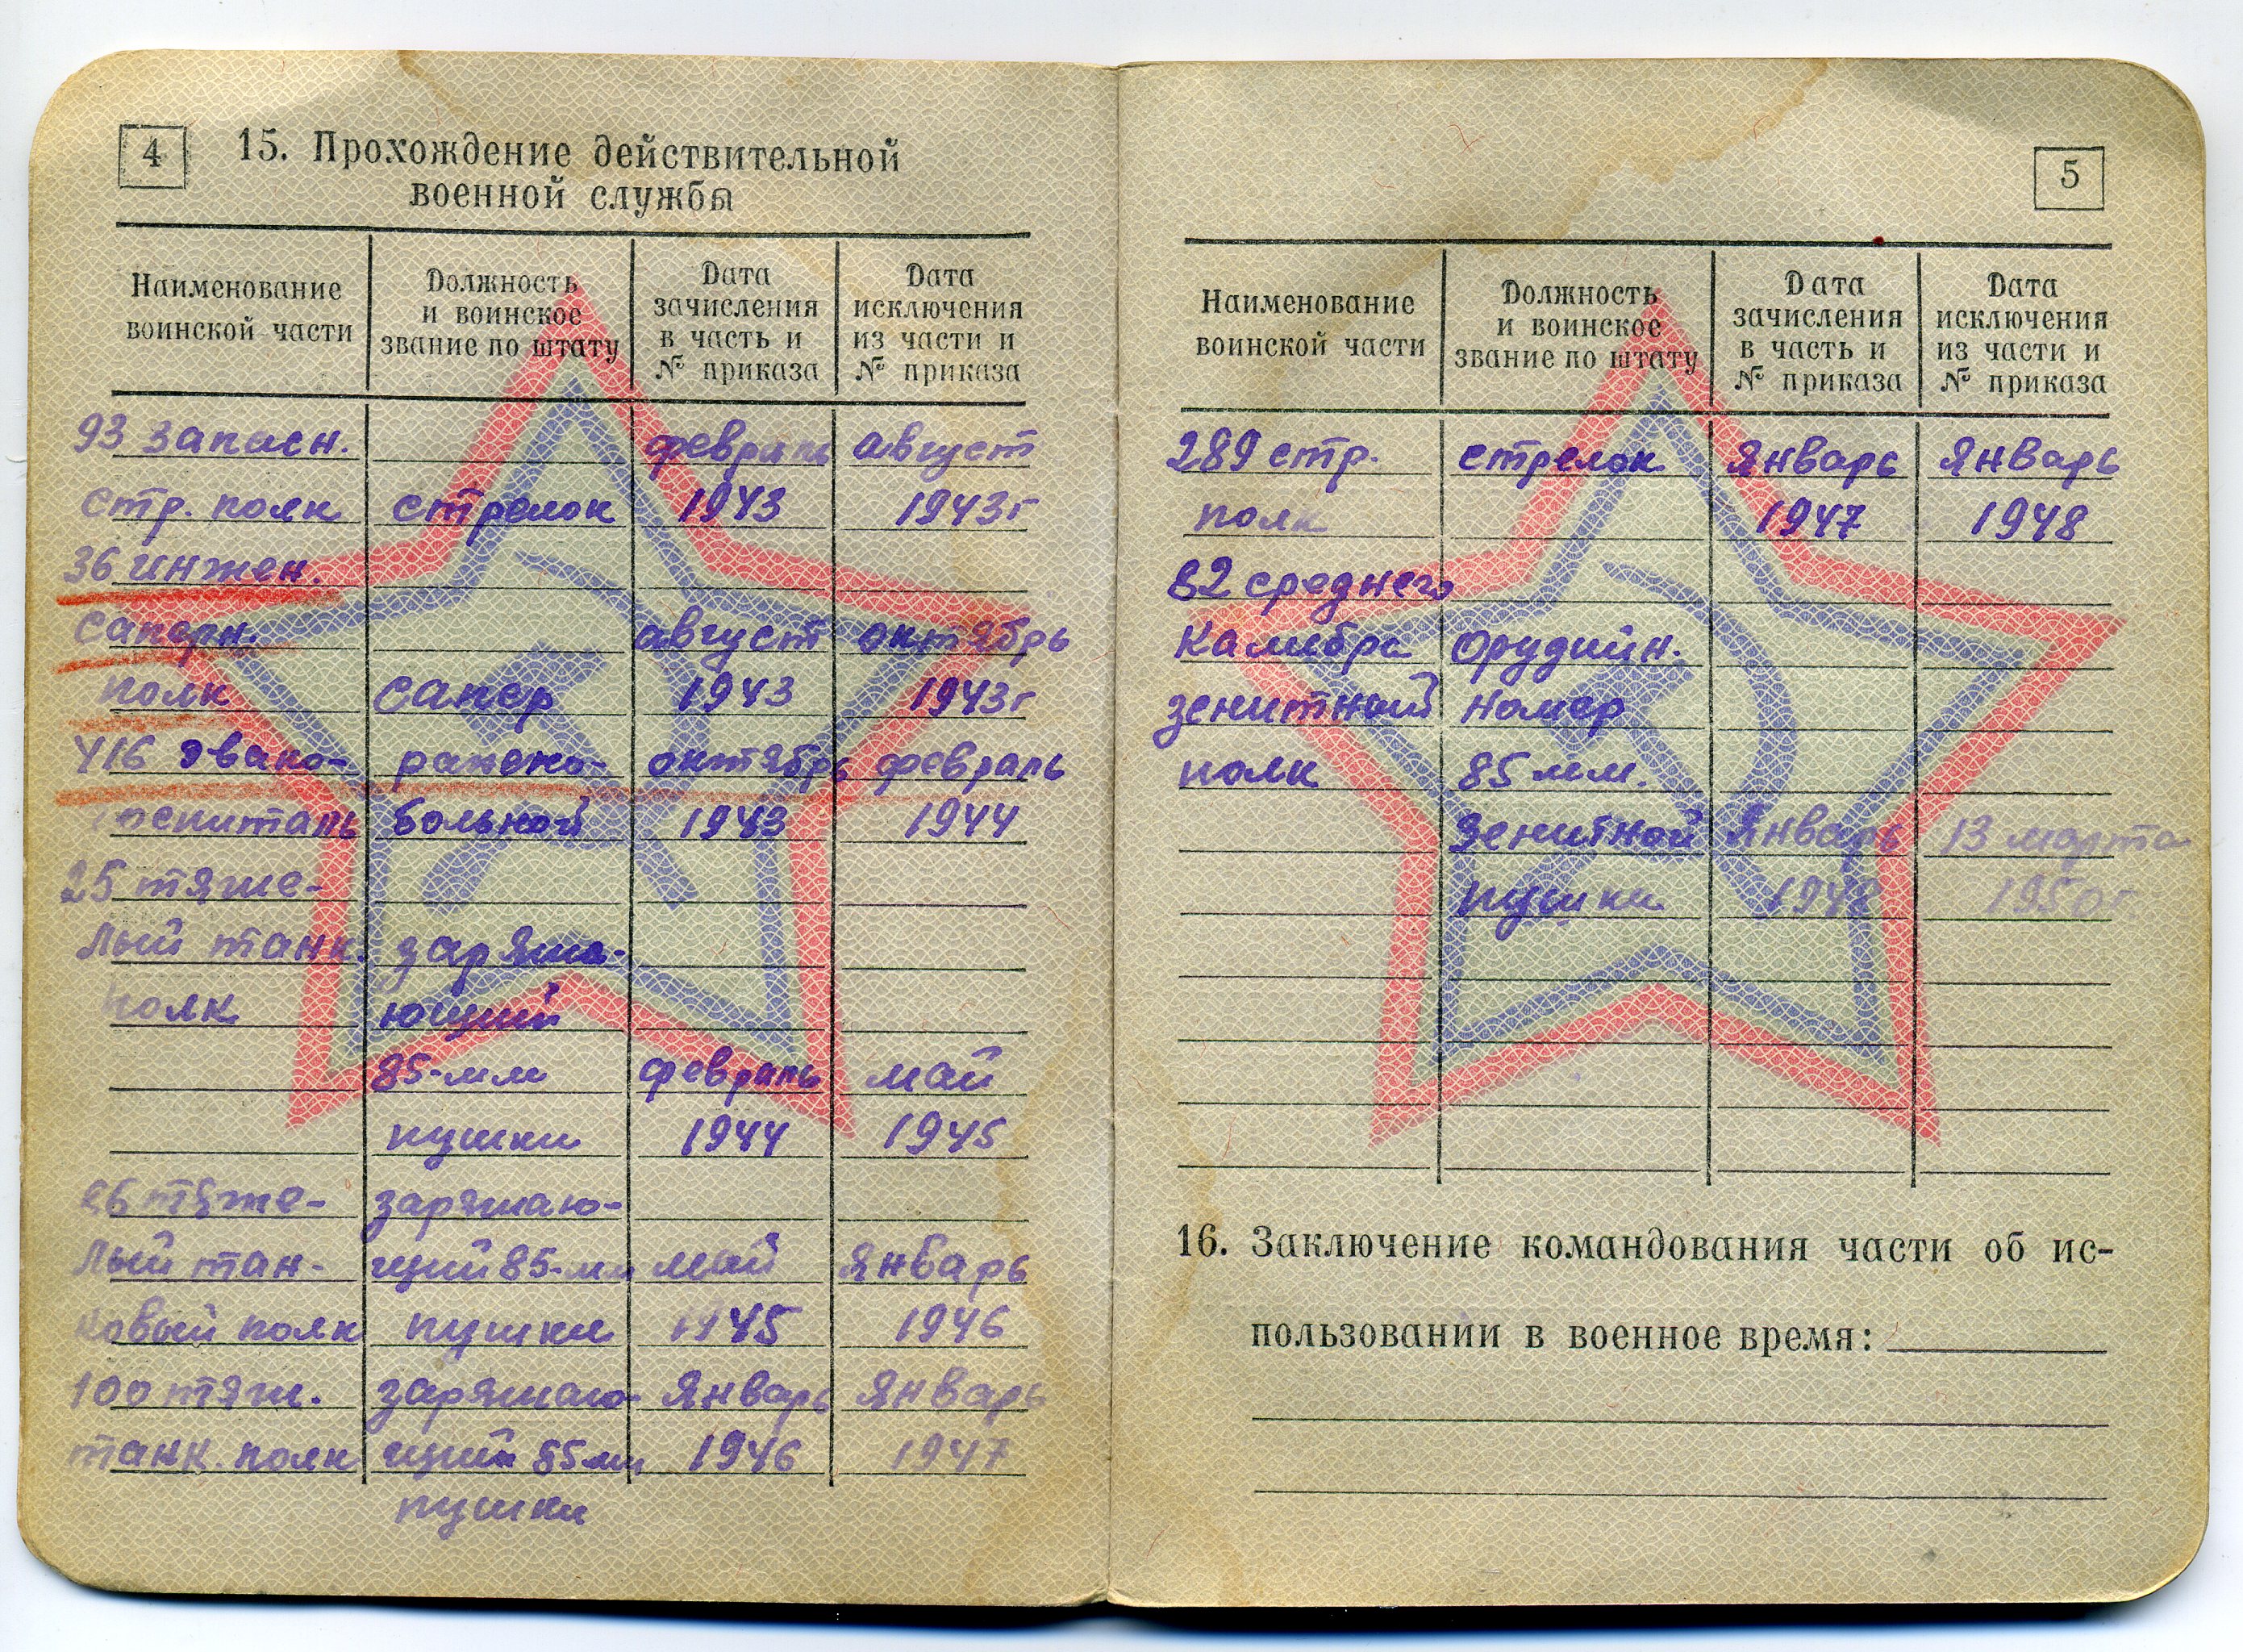 4
15. Прохождение действительной
военной службы
Наименование воинской части
Должность и воинское звание по штату
Дата зачисления в часть и № приказа
Дата исключения из части и № приказа
93 запасн. февраль август
стр. полк стрелок 1943 1943г
36 инжен.
саперн. август октябрь
полк сапер 1943 1943г
416 эвако- ранено- октябрь февраль
госпиталь больной 1943 1944
25 тяже-
лый танк. заряжа-
полк ющий
85-мм февраль май
пушки 1944 1945
26 тяже- заряжаю-
лый тан- щий 85-мм май январь
ковый полк пушки 1945 1946
100 тяж. заряжаю- январь январь
танк. полк щий 85мм 1946 1947
пушки
5
Наименование воинской части
Должность и воинское звание по штату
Дата зачисления в часть и № приказа
Дата исключения из части и № приказа
289 стр. стрелок январь январь
полк 1947 1948
82 среднего
калибра орудийн.
зенитный номер
полк 85 мм.
зенитной январь 13 марта
пушки 1948 1950г
16. Заключение командования части об ис-
пользовании в военное время: